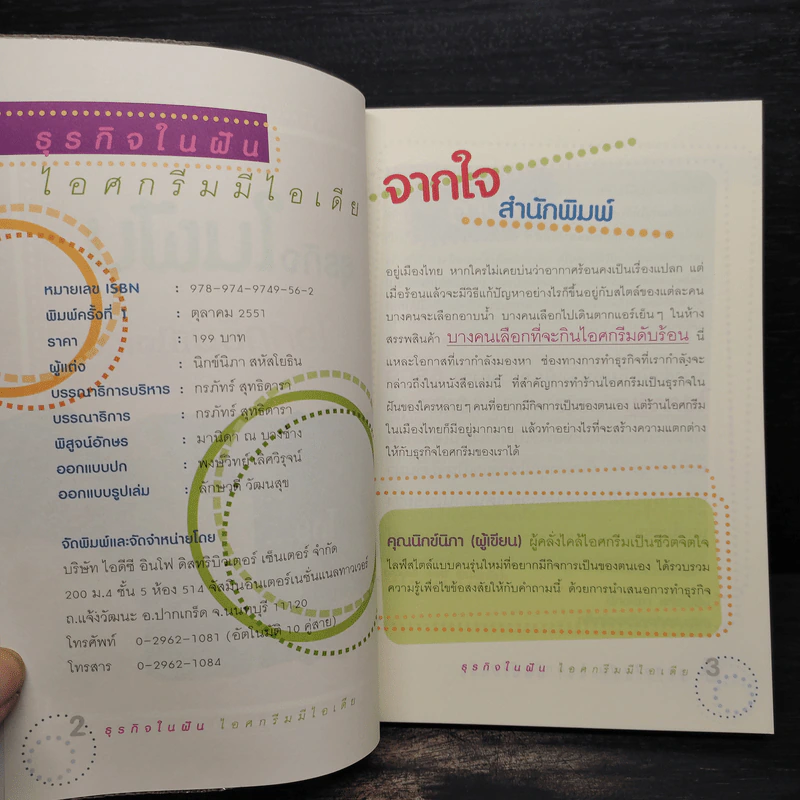 ธุรกิจในฝัน
ไอศกรีมมีไอเดีย
หมายเลข ISBN : 978-974-9749-56-2
พิมพ์ครั้งที่ 1 : ตุลาคม 2551
ราคา : 199 บาท
ผู้แต่ง : นิกข์นิภา สหัสโยธิน
บรรณาธิการบริหาร : กรภัทร์ สุทธิดารา
บรรณาธิการ : กรภัทร์ สุทธิดารา
พิสูจน์อักษร : มานิดา ณ บางช้าง
ออกแบบปก : พงษ์วิทย์ เลิศวิรุจน์
ออกแบบรูปเล่ม : ลักษวุฒิ วัฒนสุข
จัดพิมพ์และจัดจำหน่ายโดย
บริษัท ไอดีซี อินโฟ ดิสทริบิวเตอร์ เซ็นเตอร์ จำกัด
200 ม.4 ชั้น 5 ห้อง 514 จัสมินอินเตอร์เนชั่นแนลทาวเวอร์
ถ.แจ้งวัฒนะ อ.ปากเกร็ด จ.นนทบุรี 11120
โทรศัพท์ 0-2962-1081 (อัตโนมัติ 10 คู่สาย)
โทรสาร 0-2962-1084
2 ธุรกิจในฝัน ไอศกรีมมีไอเดีย
จากใจ
สำนักพิมพ์
อยู่เมืองไทย หากใครไม่เคยบ่นว่าอากาศร้อนคงเป็นเรื่องแปลก แต่
เมื่อร้อนแล้วจะมีวิธีแก้ปัญหาอย่างไรก็ขึ้นอยู่กับสไตล์ของแต่ละคน
บางคนจะเลือกอาบน้ำ บางคนเลือกไปเดินตากแอร์เย็นๆ ในห้าง
สรรพสินค้า บางคนเลือกที่จะกินไอศกรีมดับร้อน นี่
แหละโอกาสที่เรากำลังมองหา ช่องทางการทำธุรกิจที่เรากำลังจะ
กล่าวถึงในหนังสือเล่มนี้ ที่สำคัญการทำร้านไอศกรีมเป็นธุรกิจใน
ฝันของใครหลายๆ คนที่อยากมีกิจการเป็นของตนเอง แต่ร้านไอศกรีม
ในเมืองไทยก็มีอยู่มากมาย แล้วทำอย่างไรที่จะสร้างความแตกต่าง
ให้กับธุรกิจไอศกรีมของเราได้
คุณนิกข์นิภา (ผู้เขียน) ผู้คลั่งไคล้ไอศกรีมเป็นชีวิตจิตใจ
ไลฟ์สไตล์แบบคนรุ่นใหม่ที่อยากมีกิจการเป็นของตนเอง ได้รวบรวม
ความรู้เพื่อไขข้อสงสัยให้กับคำถามนี้ ด้วยการนำเสนอการทำธุรกิจ
ธุรกิจในฝัน ไอศกรีมมีไอเดีย 3